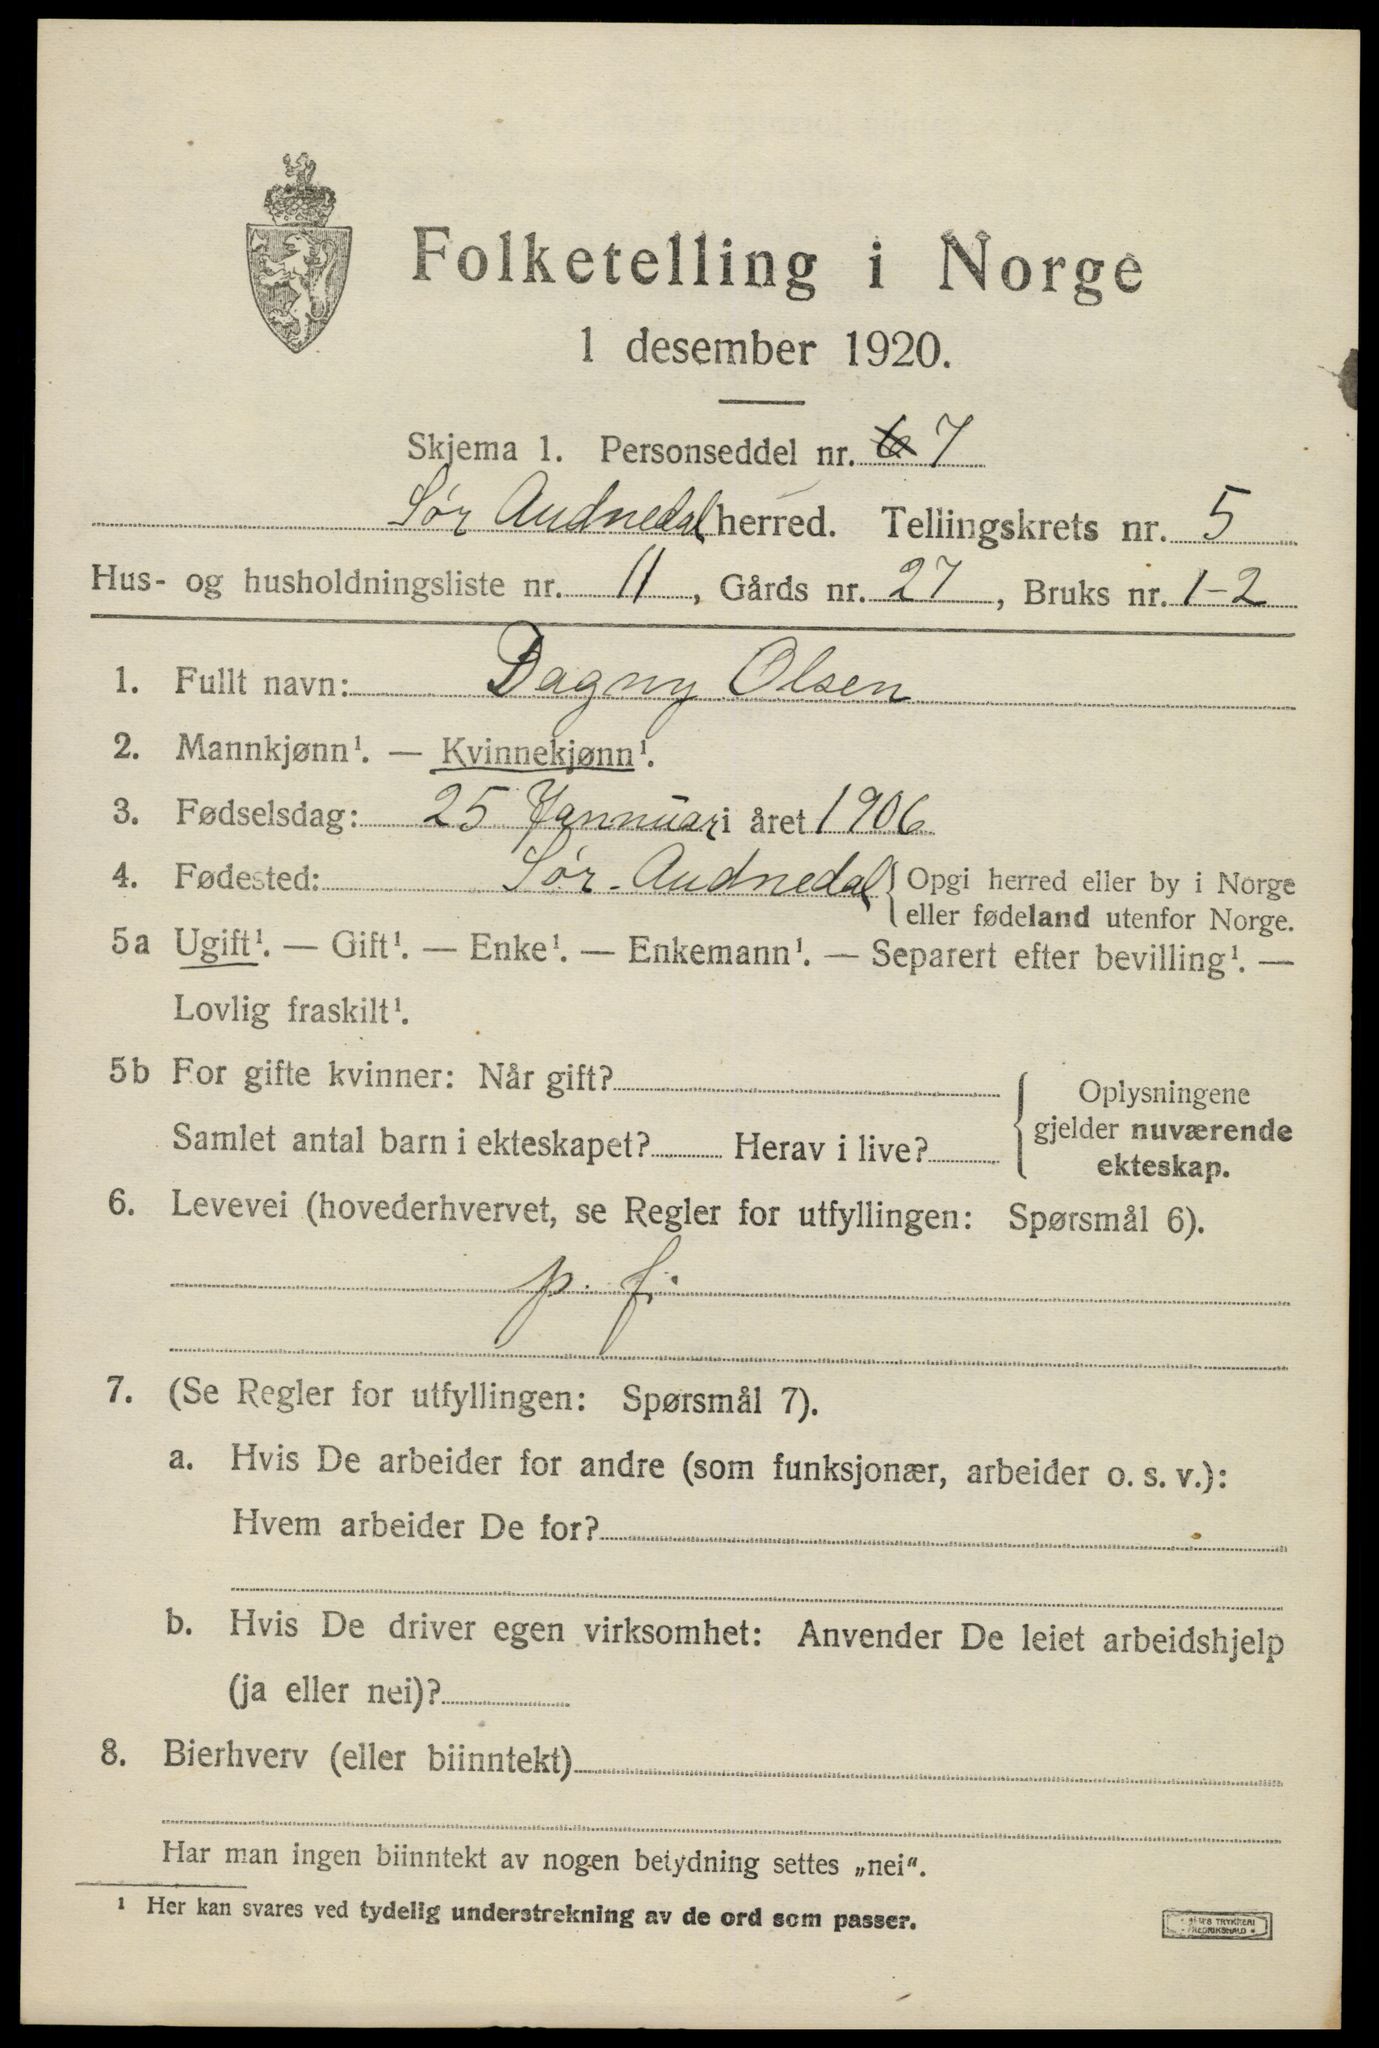 Folketelling i Norge
1 desember 1920.
Skjema 1. Personseddel nr. 6 7
Sør Audnedal herred. Tellingskrets nr. 5
Hus- og husholdningsliste nr. 11, Gårds nr. 27, Bruks nr. 1-2
1. Fullt navn: Dagny Olsen
2. Mannkjønn¹. — Kvinnekjønn¹.
3. Fødselsdag: 25 Jannuar i året 1906
4. Fødested: Sør-Audnedal { Opgi herred eller by i Norge
eller fødeland utenfor Norge.
5a Ugift¹. — Gift¹. — Enke¹. — Enkemann¹. — Separert efter bevilling¹. —
Lovlig fraskilt¹.
5b For gifte kvinner: Når gift?
Samlet antal barn i ekteskapet? Herav i live?
Oplysningene
gjelder nuværende
ekteskap.
6. Levevei (hovederhvervet, se Regler for utfyllingen: Spørsmål 6).
p. f.
7. (Se Regler for utfyllingen: Spørsmål 7).
a. Hvis De arbeider for andre (som funksjonær, arbeider o. s. v.):
Hvem arbeider De for?
b. Hvis De driver egen virksomhet: Anvender De leiet arbeidshjelp
(ja eller nei)?
8. Bierhverv (eller biinntekt)
Har man ingen biinntekt av nogen betydning settes „nei“.
¹ Her kan svares ved tydelig understrekning av de ord som passer.
TRYKKERI
FREDRIKSHALD